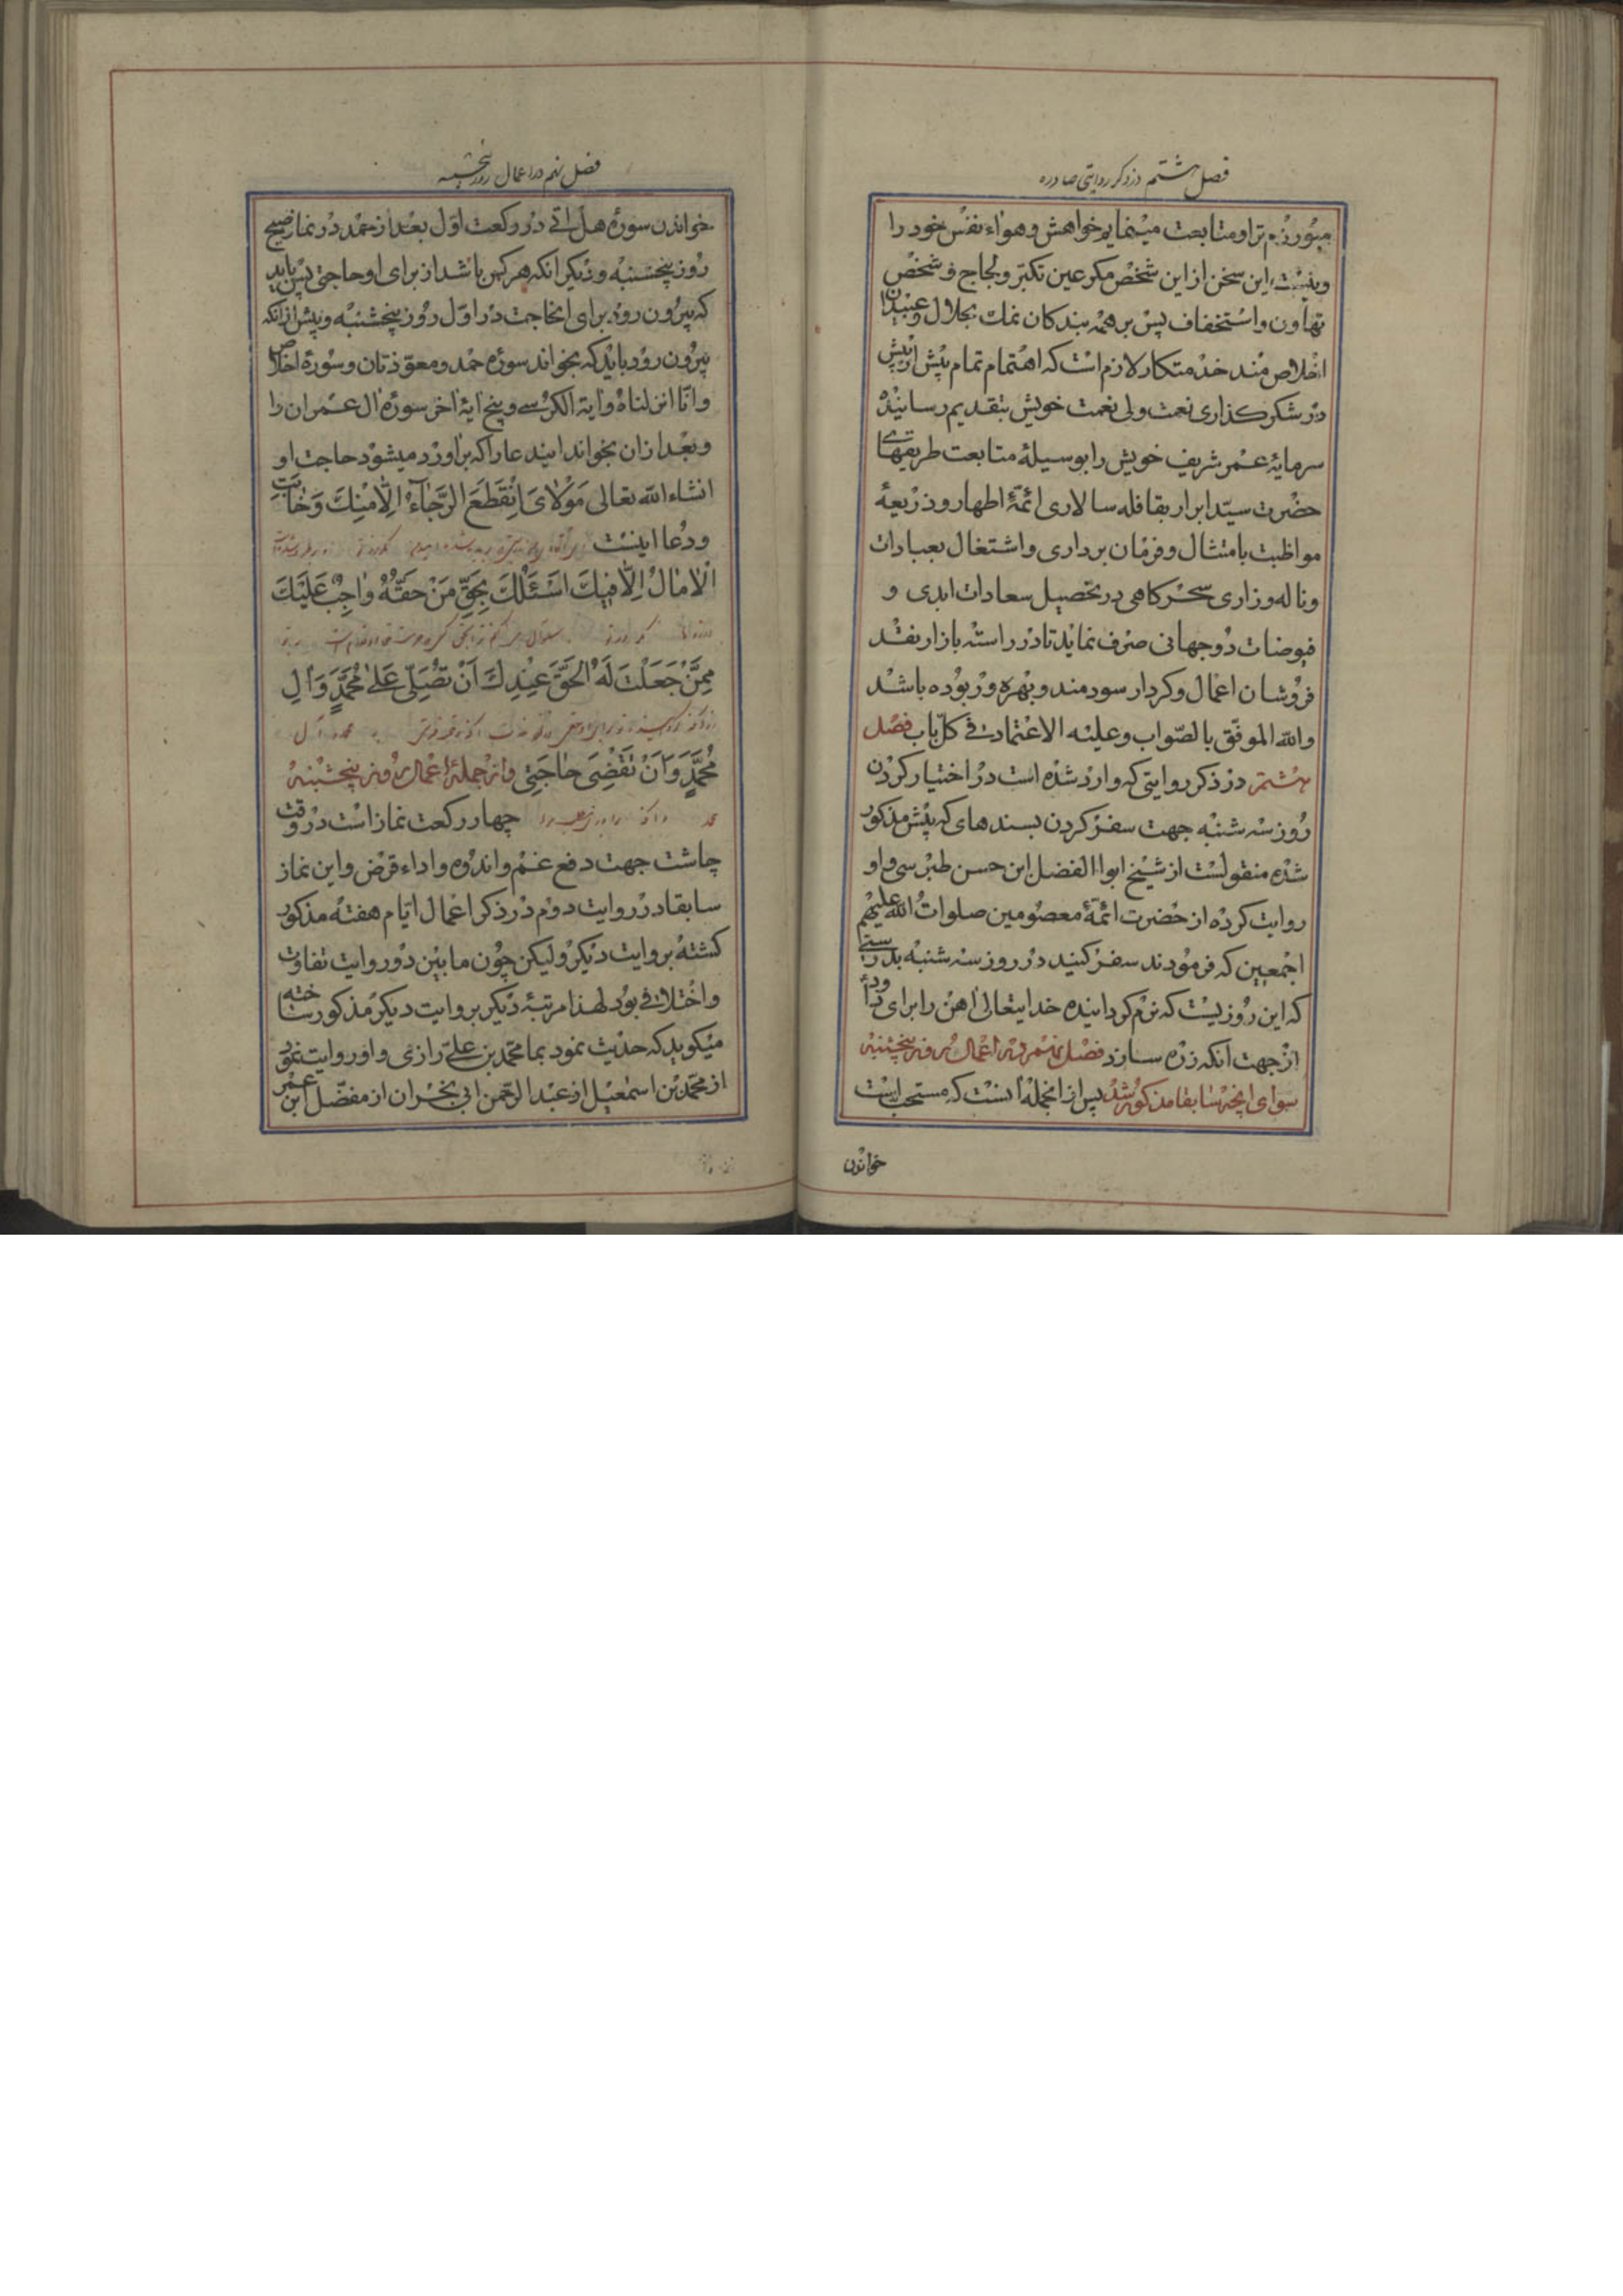 فصل هشتم در ذکر روایتی صادره
میورزم ترا و متابعت مینمایم خواهش و هواء نفس خود را
و نیست این سخن از این شخص مکر عین تکبّر و لجاج و شخص
تهاون و استخفاف پس بر همه بندکان نمک بحلال و عبیدان
اخلاص مند خدمتکار لازم است که اهتمام تمام پیش از پیش
در شکر کذاری نعمت ولی نعمت خویش بتقدیم رسانیده
سرمایهٔ عمر شریف خویش را بوسیلهٔ متابعت طریقهای
حضرت سیّد ابرار بقافله سالاری ائمّهٔ اطهار و ذریعهٔ
مواظبت بامتثال و فرمان برداری و اشتغال بعبادات
و ناله و زاری سحر کاهی در تحصیل سعادات ابدی و
فیوضات دوجهانی صرف نماید تا در راسته بازار نقد
فروشان اعمال و کردار سودمند و بهره ور بوده باشد
والله الموفق بالصّواب و علیه الاعتماد فی کلّ باب فصل
هشتم در ذکر روایتی که وارد شده است در اختیار کردن
روز سه شنبه جهت سفر کردن بسندهای که پیش مذکور
شده منقولست از شیخ ابوا الفضل ابن حسن طبرسی و او
روایت کرده از حضرت ائمّهٔ معصومین صلوات الله علیهم
اجمعین که فرمودند سفر کنید در روز سه شنبه بدرستی
که این روزیست که نرم کردانیده خدایتعالی اهن را برای داود
از جهت انکه زره سازد فصل نهم در اعمال روز پنجشنبه
سوای انچه سابقا مذکور شد پس از انجمله انست که مستحب است
خواندن
فصل نهم در اعمال روز پنجشنبه
خواندن سورهٔ هل اتی در رکعت اول بعد از حمد در نماز صبح
روز پنجشنبه و دیکر انکه هر کس باشد از برای او حاجتی پس باید
که بیرون رود برای انحاجت در اول روز پنجشنبه و پیش از انکه
بیرون رود باید که بخواند سوره حمد و معوّذتان و سورهٔ اخلاص
و انّا انزلناه و ایة الکرسی و پنج ایهٔ اخر سورهٔ ال عمران را
و بعد از ان بخواند ایندعا را که براورد میشود حاجت او
انشاء الله تعالی مَوْلایَ اِنْقَطَعَ الرَّجاءُ اِلّا مِنْكَ وَ خابَتِ
و دعا اینست
الْامالُ اِلّا فیكَ اَسْئَلُكَ بِحَقِّ مَنْ حَقُّهُ واجِبٌ عَلَیْكَ
مِمَّنْ جَعَلْتَ لَهُ الْحَقَّ عِنْدَكَ اَنْ تُصَلِّیَ عَلی مُحَمَّدٍ وَ الِ
مُحَمَّدٍ وَ اَنْ تَقْضِیَ حاجَتی و از جملهٔ اعمال روز پنجشنبه
چهار رکعت نماز است در وقت
چاشت جهت دفع غم و اندوه و اداء قرض و این نماز
سابقا در روایت دوم در ذکر اعمال ایّام هفته مذکور
کشته بروایت دیکر و لیکن چون مابین دو روایت تفاوت
و اختلافی بود لهذا مرتبهٔ دیکر بروایت دیکر مذکور ساخته
میکوید که حدیث نمود بما محمّد بن علی رازی و او روایت نمود
از محمّد بن اسمعیل از عبد الرّحمن ابی نجران از مفضّل ابن عمر